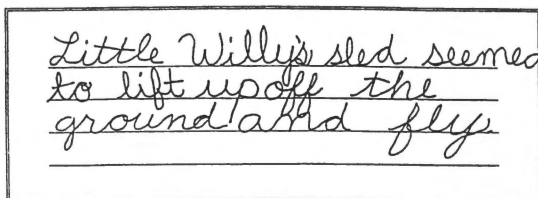 Little Willy's sled seemed
to lift up off the
ground and fly.